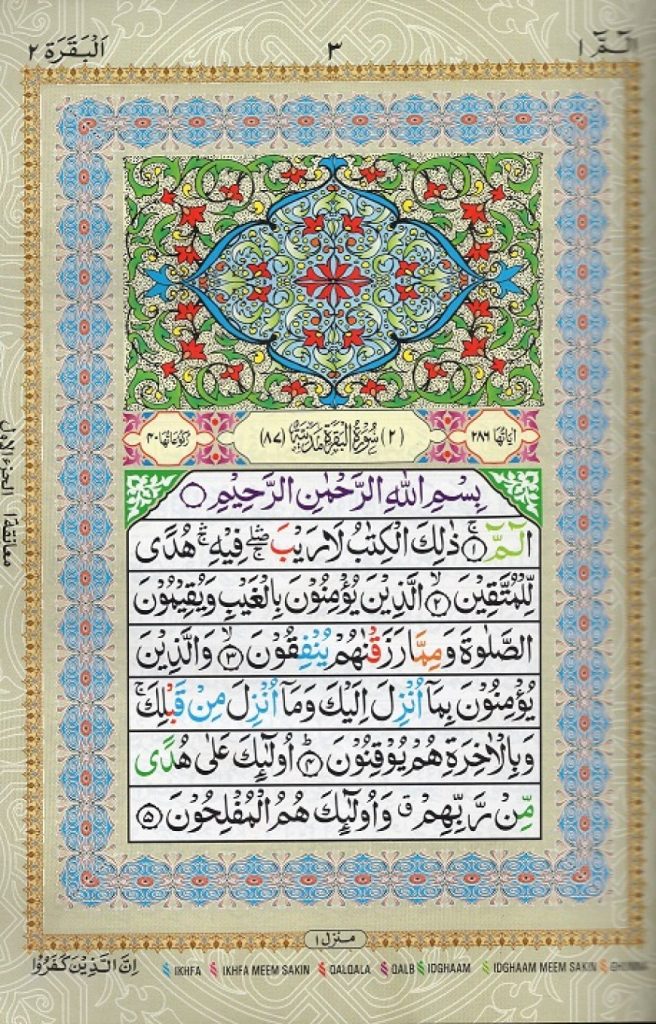 الٓمّٓ ۱
۳
اَلْبَقَرَة ۲
اٰیَاتُهَا ۲۸۶
(۲) سُوْرَةُ الْبَقَرَةِ مَدَنِیَّةٌ (۸۷)
رُكُوْعَاتُهَا ۴۰
بِسْمِ اللهِ الرَّحْمٰنِ الرَّحِیْمِ
الٓمّٓ ۚ﴿۱﴾ ذٰلِكَ الْكِتٰبُ لَا رَیْبَ ۛۖ فِیْهِ ۛۚ هُدًی
لِّلْمُتَّقِیْنَ ۙ﴿۲﴾ الَّذِیْنَ یُؤْمِنُوْنَ بِالْغَیْبِ وَیُقِیْمُوْنَ
الصَّلٰوةَ وَمِمَّا رَزَقْنٰهُمْ یُنْفِقُوْنَ ۙ﴿۳﴾ وَالَّذِیْنَ
یُؤْمِنُوْنَ بِمَاۤ اُنْزِلَ اِلَیْكَ وَمَاۤ اُنْزِلَ مِنْ قَبْلِكَ ۚ
وَبِالْاٰخِرَةِ هُمْ یُوْقِنُوْنَ ؕ﴿۴﴾ اُولٰٓئِكَ عَلٰی هُدًی
مِّنْ رَّبِّهِمْ ۗ وَاُولٰٓئِكَ هُمُ الْمُفْلِحُوْنَ ﴿۵﴾
معانقة ۱ الجزء الاول
منزل ۱
اِنَّ الَّذِیْنَ كَفَرُوْا
IKHFA IKHFA MEEM SAKIN QALQALA QALB IDGHAAM IDGHAAM MEEM SAKIN GHUNNA